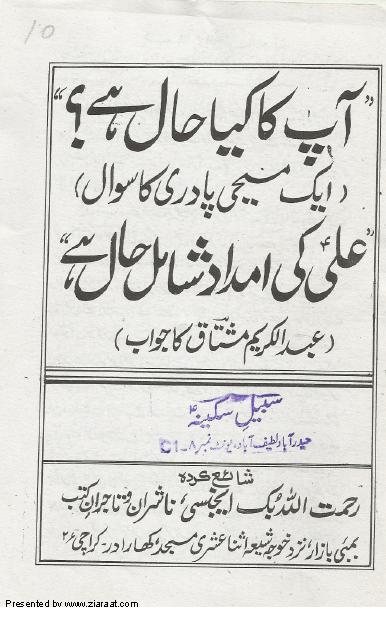 10
"آپ کا کیا حال ہے؟"
(ایک مسیحی پادری کا سوال)
"علیؑ کی امداد شامل حال ہے"
(عبدالکریم مشتاق کا جواب)
سبیلِ سکینہؑ
حیدرآباد لطیف آباد، یونٹ نمبر ۸-C1
شائع کردہ
رحمت اللہ بُک ایجنسی، ناشران و تاجرانِ کتب
بمبئی بازار، نزد خوجہ شیعہ اثنا عشری مسجد، کھارادر۔ کراچی ۲۶
Presented by www.ziaraat.com